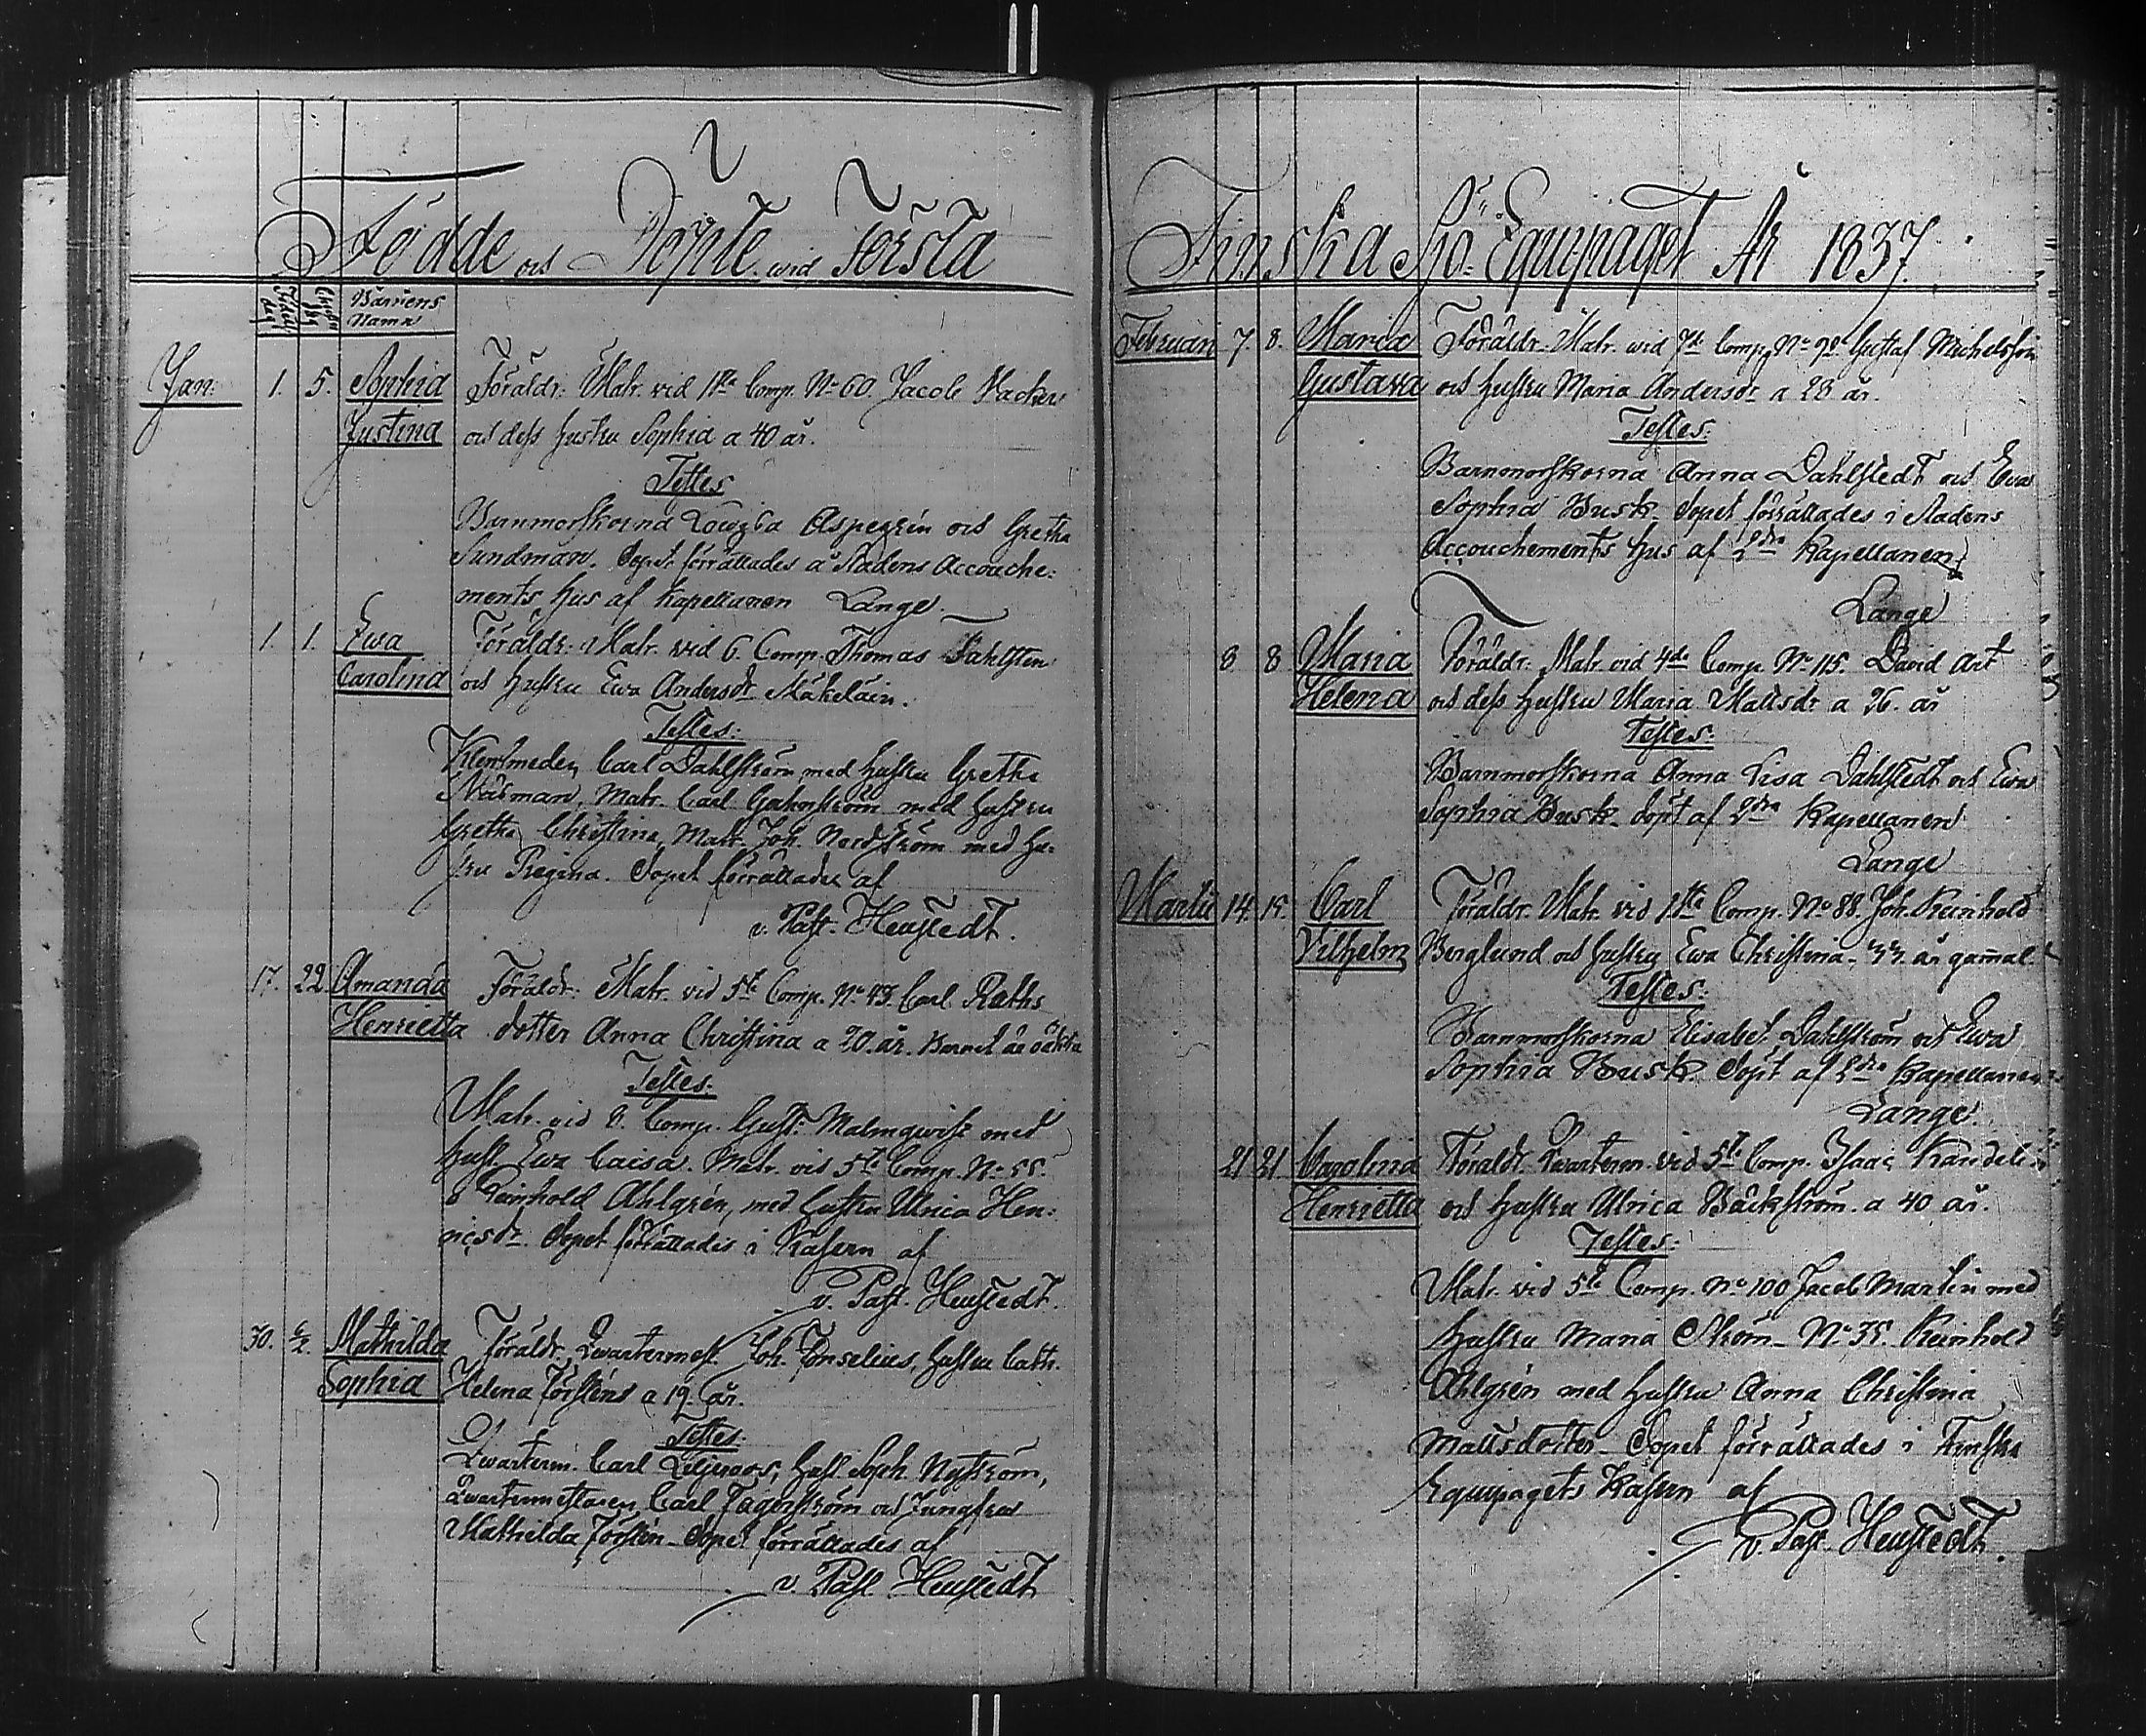 Födde och Döpte wid Första
Födelse dag
Christn. dag
Barnens Namn
Jan: 1. 5. Sophia Föräldr: Matr. vid 1sta Comp. No 60. Jacob Wacker
Justina och dess hustru Sophia a 40 år.
Testes
Barnmorskorna Lowisa Aspegrén och Gretha
Sundman. Dopet förrättades å Stadens Accouche:
ments hus af Kapellanen Lange.
1. 1. Ewa Föräldr: Matr. wid 6. Comp. Thomas Fahlsten
Carolina och hustru Ewa Andersdr Mäkeläin.
Testes:
Klensmeden Carl Dahlström med hustru Gretha
Näsman, Matr. Carl Gahnström med hustru
Gretha Christina, Matr. Joh. Nordström med hu-
stru Regina. Dopet förrättades af
v. Past. Heustedt.
17. 22. Amanda Föräldr: Matr. vid 5te Comp. No 43. Carl Raths
Henrietta dotter Anna Christina a 20. år. Barnet är oäkta
Testes:
Matr. vid 8. Comp. Gust: Malmqwist med
hust. Ewa Caisa. Matr. vid 5te Comp. No 55.
Reinhold Ahlgrén, med hustru Ulrica Hen:
ricsdr. Dopet förrättades i Kasern af
v. Past. Heustedt.
30. 6/2. Mathilda Föräldr. Qwartermest. Joh. Fonselius, hustru Cath.
Sophia Helena Törsténs a 19. år.
Testes:
Qwarterm. Carl Liljeroos, hust. Soph. Nyström,
Qwartermestaren Carl Fagerström och Jungfru
Mathilda Törstén. Dopet förrättades af
v. Past. Heustedt
Finska Sjö-Equipaget År 1837.
Februari 7. 8. Maria Föräldr. Matr. wid 7de Comp. No 98. Gustaf Michelsson
Gustava och hustru Maria Andersdr. a 28 år.
Testes:
Barnmorskorna Anna Dahlstedt och Ewa
Sophia Busk. Dopet förrättades i Stadens
Accouchements hus af 2dra Kapellanen
Lange
8 8 Maria Föräldr. Matr. vid 4de Comp. No 115. David Art
Helena och dess hustru Maria Mattsdr a 26. år
Testes:
Barnmorskorna Anna Lisa Dahlstedt och Ewa
Sophia Busk. döpt af 2dra Kapellanen
Lange
Martii 14. 15. Carl Föräldr. Matr. vid 1sta Comp. No 88. Joh. Reinhold
Vilhelm Berglund och hustru Ewa Christina. 33. år gam̄al
Testes:
Barnmorskorna Elisabet Dahlström och Ewa
Sophia Busk. Döpt af 2dra Kapellanen
Lange.
21 21 Carolina Föräldr. Qwarterm. vid 5te Comp. Isaac Kandelin
Henrietta och hustru Ulrica Bäckström. a 40 år.
Testes:
Matr. vid 5te Comp. No 100 Jacob Martin med
hustru Maria Ström. No 35. Reinhold
Ahlgrén med hustru Anna Christina
Mattsdotter. Dopet förrättades i Finska
Equipagets Kasern af
v. Past. Heustedt.